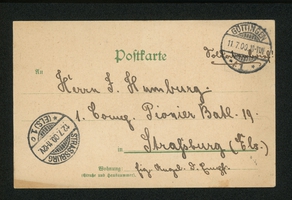 GÖTTINGEN
11.7.00.
Postkarte
An
Herrn F. Humburg
1. Comp. Pionier Batl. 19.
in Straßburg (Els.)
STRASSBURG
12.7.00.
(ELS) 1
Wohnung
(Straße und Hausnummer)